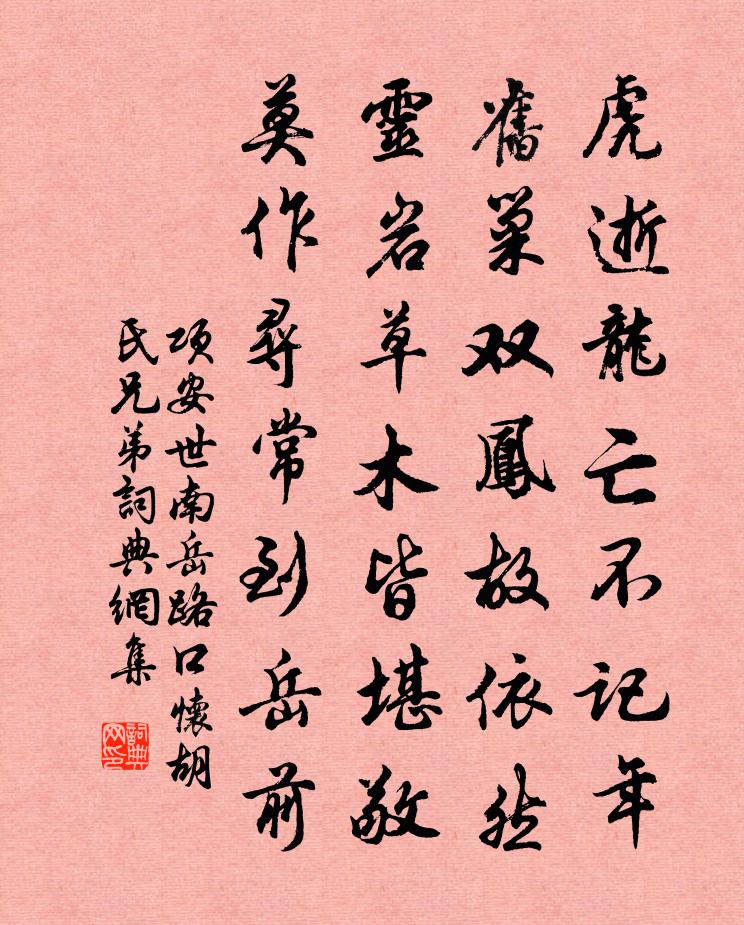 虎逝龍亡不记年
舊巢双鳳故依然
靈岩草木皆堪敬
莫作尋常到岳前
项安世南岳路口懷胡
氏兄弟詞典網集
詞典网印